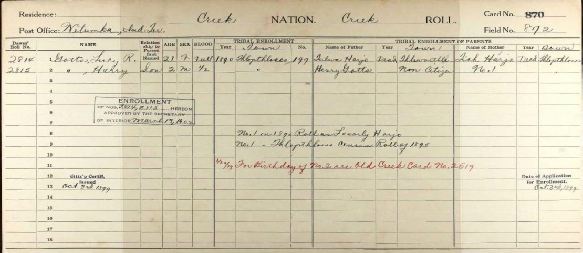 Residence: Creek NATION. Creek ROLL. Card No. 870
Post Office: Wetumka, Ind. Ter. Field No. 892
Dawes' Roll No. NAME Relationship to Person first Named AGE SEX BLOOD TRIBAL ENROLLMENT TRIBAL ENROLLMENT OF PARENTS
Year Town No. Name of Father Year Town Name of Mother Year Town
2814 Gotts, Lucy R. 21 F Full 1890 Thlopthlocco 199 Harjo Dead Harjo Dead Thlopthlocco
2815 " Harry Son 2 M ½ " Henry Gotts Non Citizen No. 1
ENROLLMENT
OF NOS. HEREON
APPROVED BY THE SECRETARY
OF INTERIOR March 13, 1902
No. 1 on 1890 Roll as Harjo
No. 1 - Thlopthlocco Roll of 1895
For Birthday of No. 2 see Old Creek Card No. 2519
Citiz'n Certif. issued
Oct 3rd 1899
Date of Application for Enrollment.
Oct. 3rd, 1899